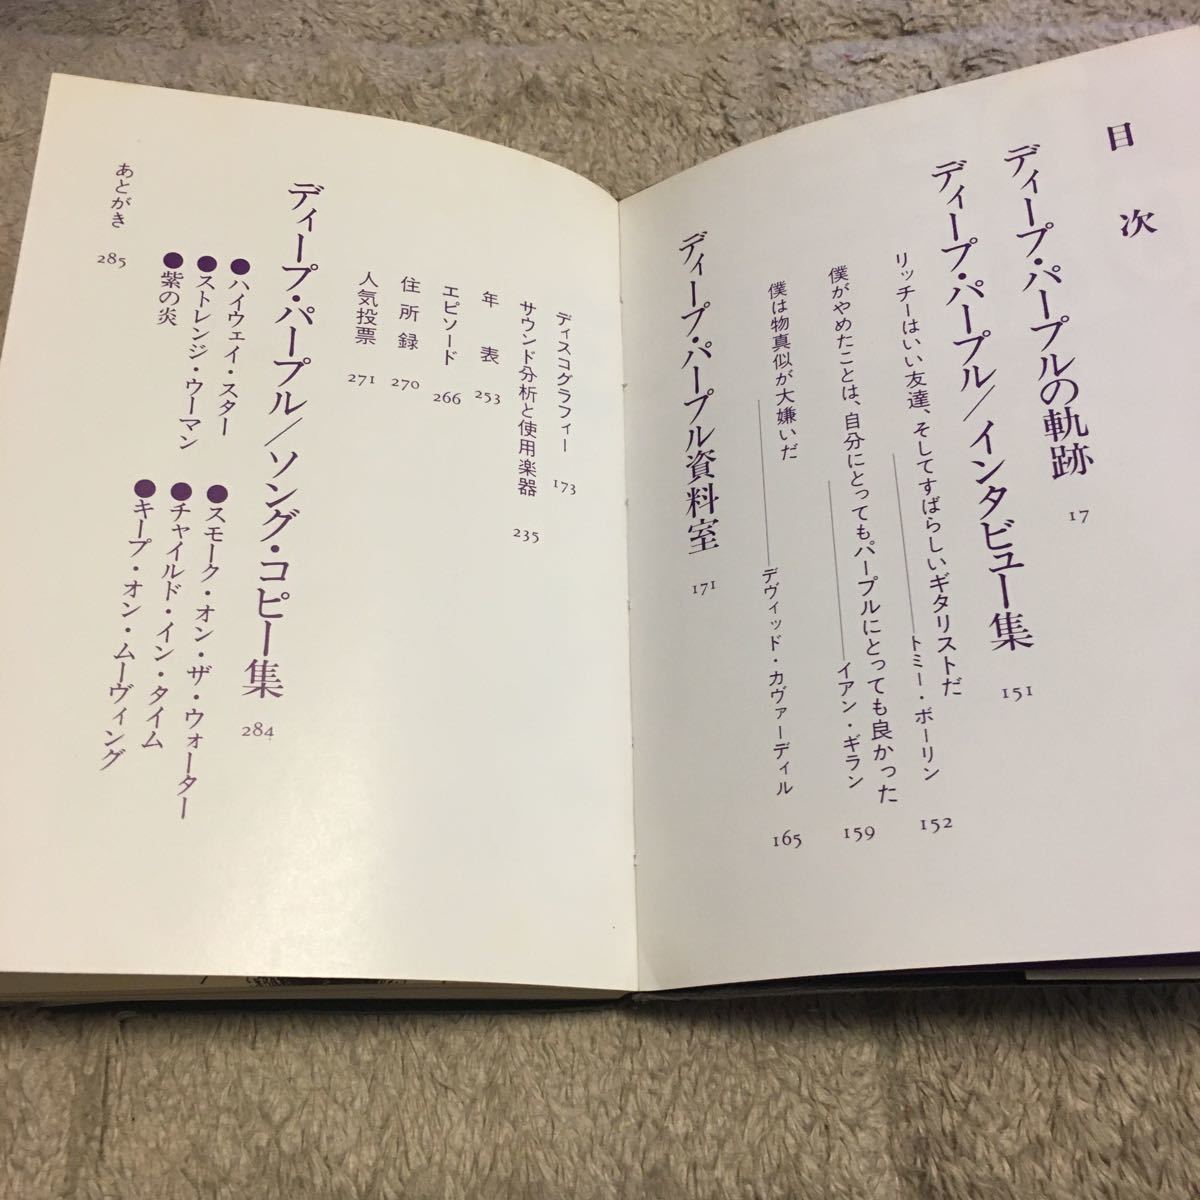 目次
ディープ・パープルの軌跡 17
ディープ・パープル/インタビュー集 151
リッチーはいい友達、そしてすばらしいギタリストだ
トミー・ボーリン 152
僕がやめたことは、自分にとってもパープルにとっても良かった
イアン・ギラン 159
僕は物真似が大嫌いだ
デヴィッド・カヴァーディル 165
ディープ・パープル資料室 171
ディスコグラフィー 173
サウンド分析と使用楽器 235
年表 253
エピソード 266
住所録 270
人気投票 271
ディープ・パープル/ソング・コピー集 284
●ハイウェイ・スター
●スモーク・オン・ザ・ウォーター
●ストレンジ・ウーマン
●チャイルド・イン・タイム
●紫の炎
●キープ・オン・ムーヴィング
あとがき 285